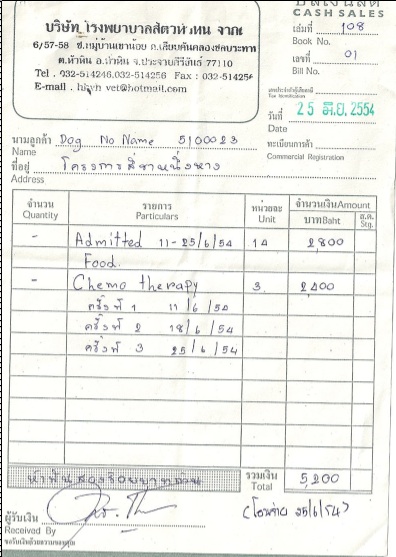 บิลเงินสด
CASH SALES
บริษัท โรงพยาบาลสัตว์หัวหิน จำกัด
6/57-58 ซ.หมู่บ้านเขาน้อย ถ.เลียบคันคลองชลประทาน
ต.หัวหิน อ.หัวหิน จ.ประจวบคีรีขันธ์ 77110
Tel . 032-514246,032-514256 Fax : 032-514256
E-mail . hhvh vet@hotmail.com
เล่มที่ 108
Book No.
เลขที่ 01
Bill No.
เลขประจำตัวผู้เสียภาษี
วันที่ 25 มิ.ย. 2554
Date
ทะเบียนการค้า
Commercial Registration
นามลูกค้า Dog No Name 5100023
Name
ที่อยู่ โครงการสี่ขาหนึ่งหาง
Address
จำนวน รายการ หน่วยละ จำนวนเงิน Amount
Quantity Particulars Unit บาท Baht ส.ต. Stg.
- Admitted 11-25/6/54 14 2,800
Food.
- Chemo therapy 3 2,400
ครั้งที่ 1 11/6/54
ครั้งที่ 2 18/6/54
ครั้งที่ 3 25/6/54
ห้าพันสองร้อยบาทถ้วน รวมเงิน 5,200
Total
ผู้รับเงิน
Received By
(โอนเงิน 25/6/54)